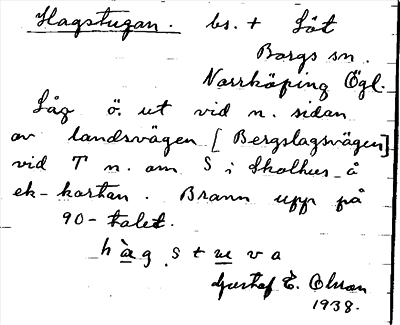 Hagstugan. bs. + Söt
Borgs sn.
Norrköping Ögl.
Låg ö. ut vid n. sidan
av landsvägen [Bergslagsvägen]
vid T n. om S i Skolhus å
ek-kartan. Brann upp på
90-talet.
hàg stuva
Gustaf E. Olsson
1938.